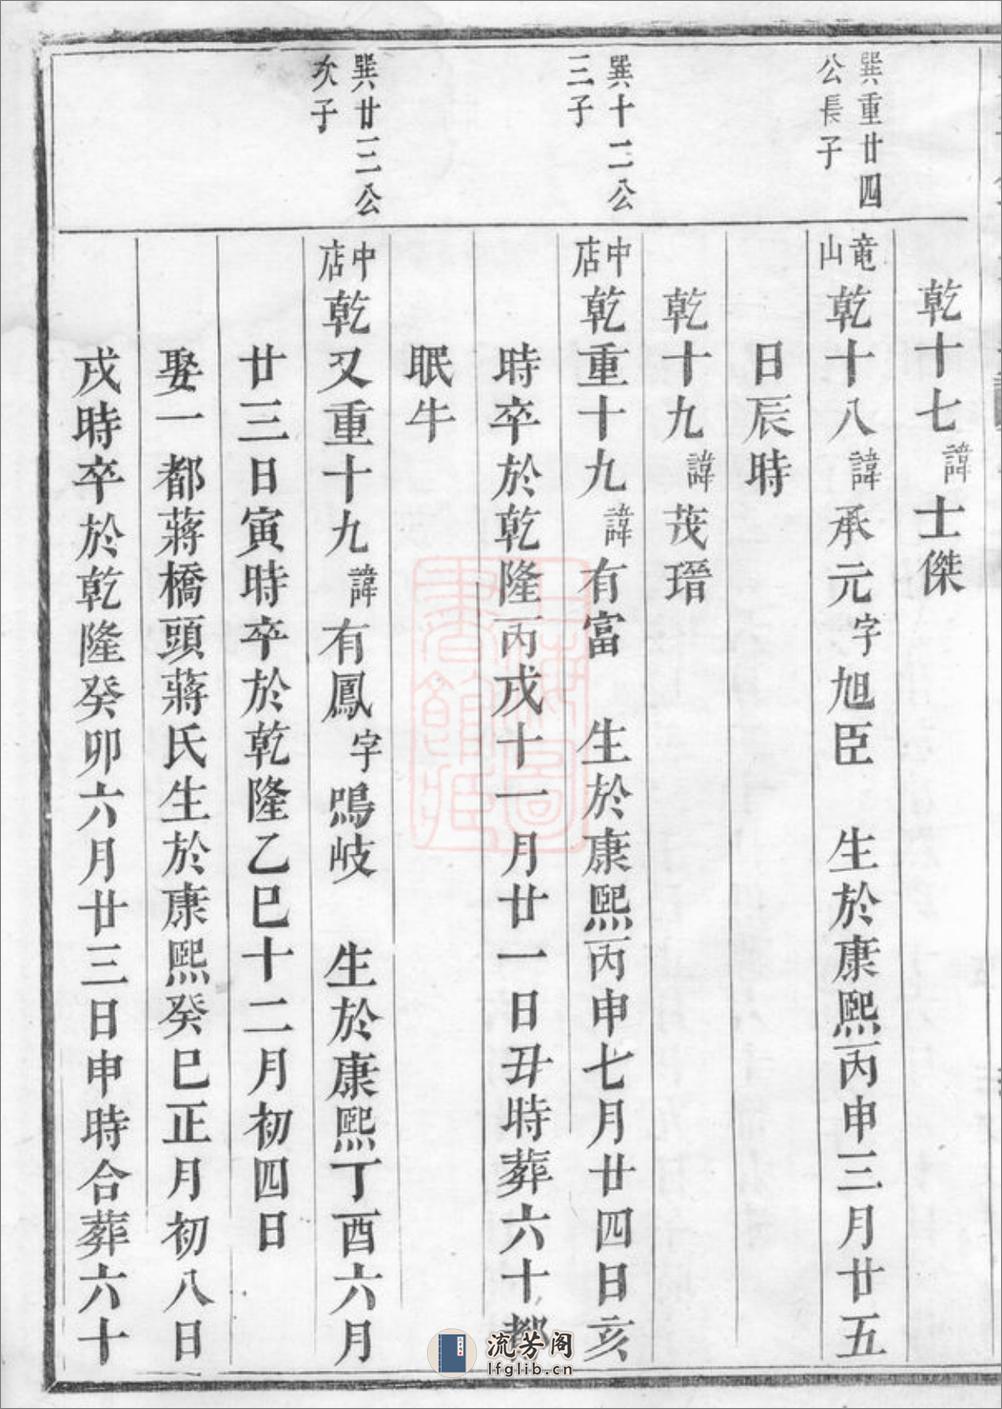 乾十七諱士傑
巽重廿四
公長子
竜山乾十八諱承元字旭臣　生於康熙丙申三月廿五
日辰時
乾十九諱茂瑨
巽十二公
三子
中店乾重十九諱有富　生於康熙丙申七月廿四日亥
時卒於乾隆丙戌十一月廿一日丑時葬六十都
眠牛
巽廿三公
次子
中店乾又重十九諱有鳳字鳴岐　生於康熙丁酉六月
廿三日寅時卒於乾隆乙巳十二月初四日
娶一都蔣橋頭蔣氏生於康熙癸巳正月初八日
戌時卒於乾隆癸卯六月廿三日申時合葬六十
流芳阁
lfglib.cn